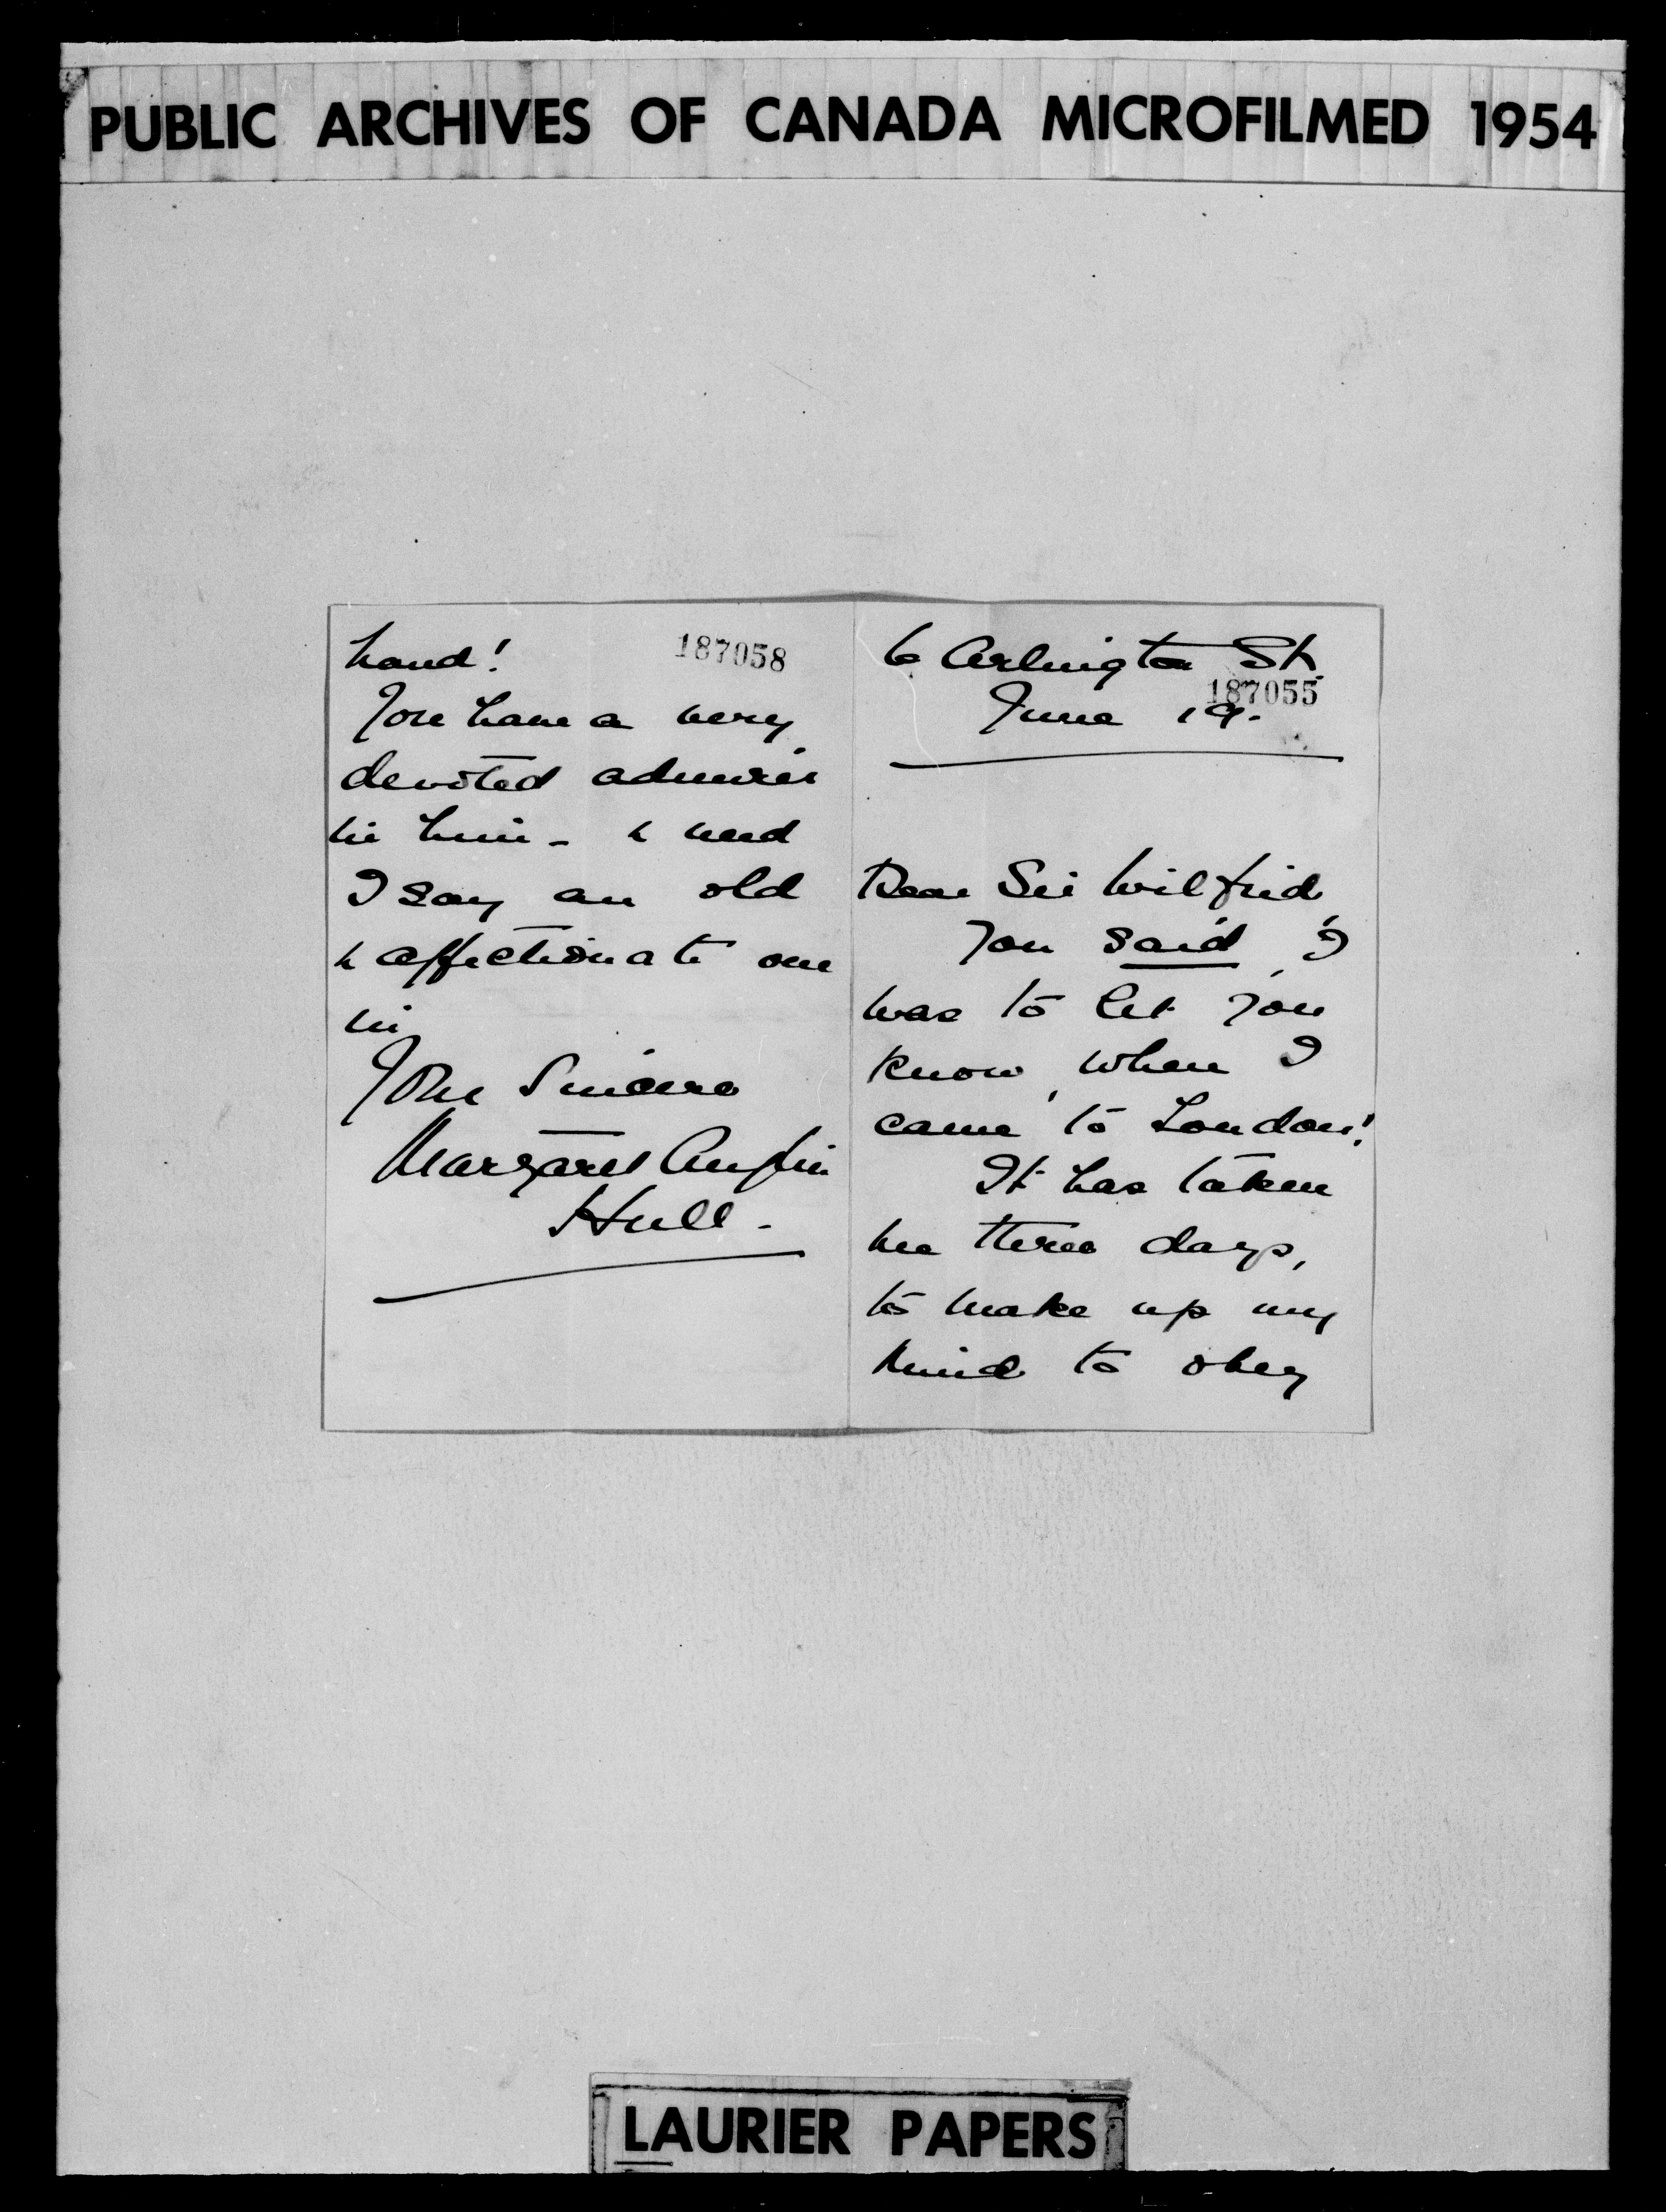 PUBLIC ARCHIVES OF CANADA MICROFILMED 1954
hand!
187058
You have a very
devoted admirer
in him - & need
I say an old
& affectionate one
in
Your Sincere
Margaret Anglin
Hull.
6 Arlington St.
187055
June 19.
Dear Sir Wilfrid
You said I
was to let you
know when I
came to London!
It has taken
me three days,
to make up my
mind to obey
LAURIER PAPERS